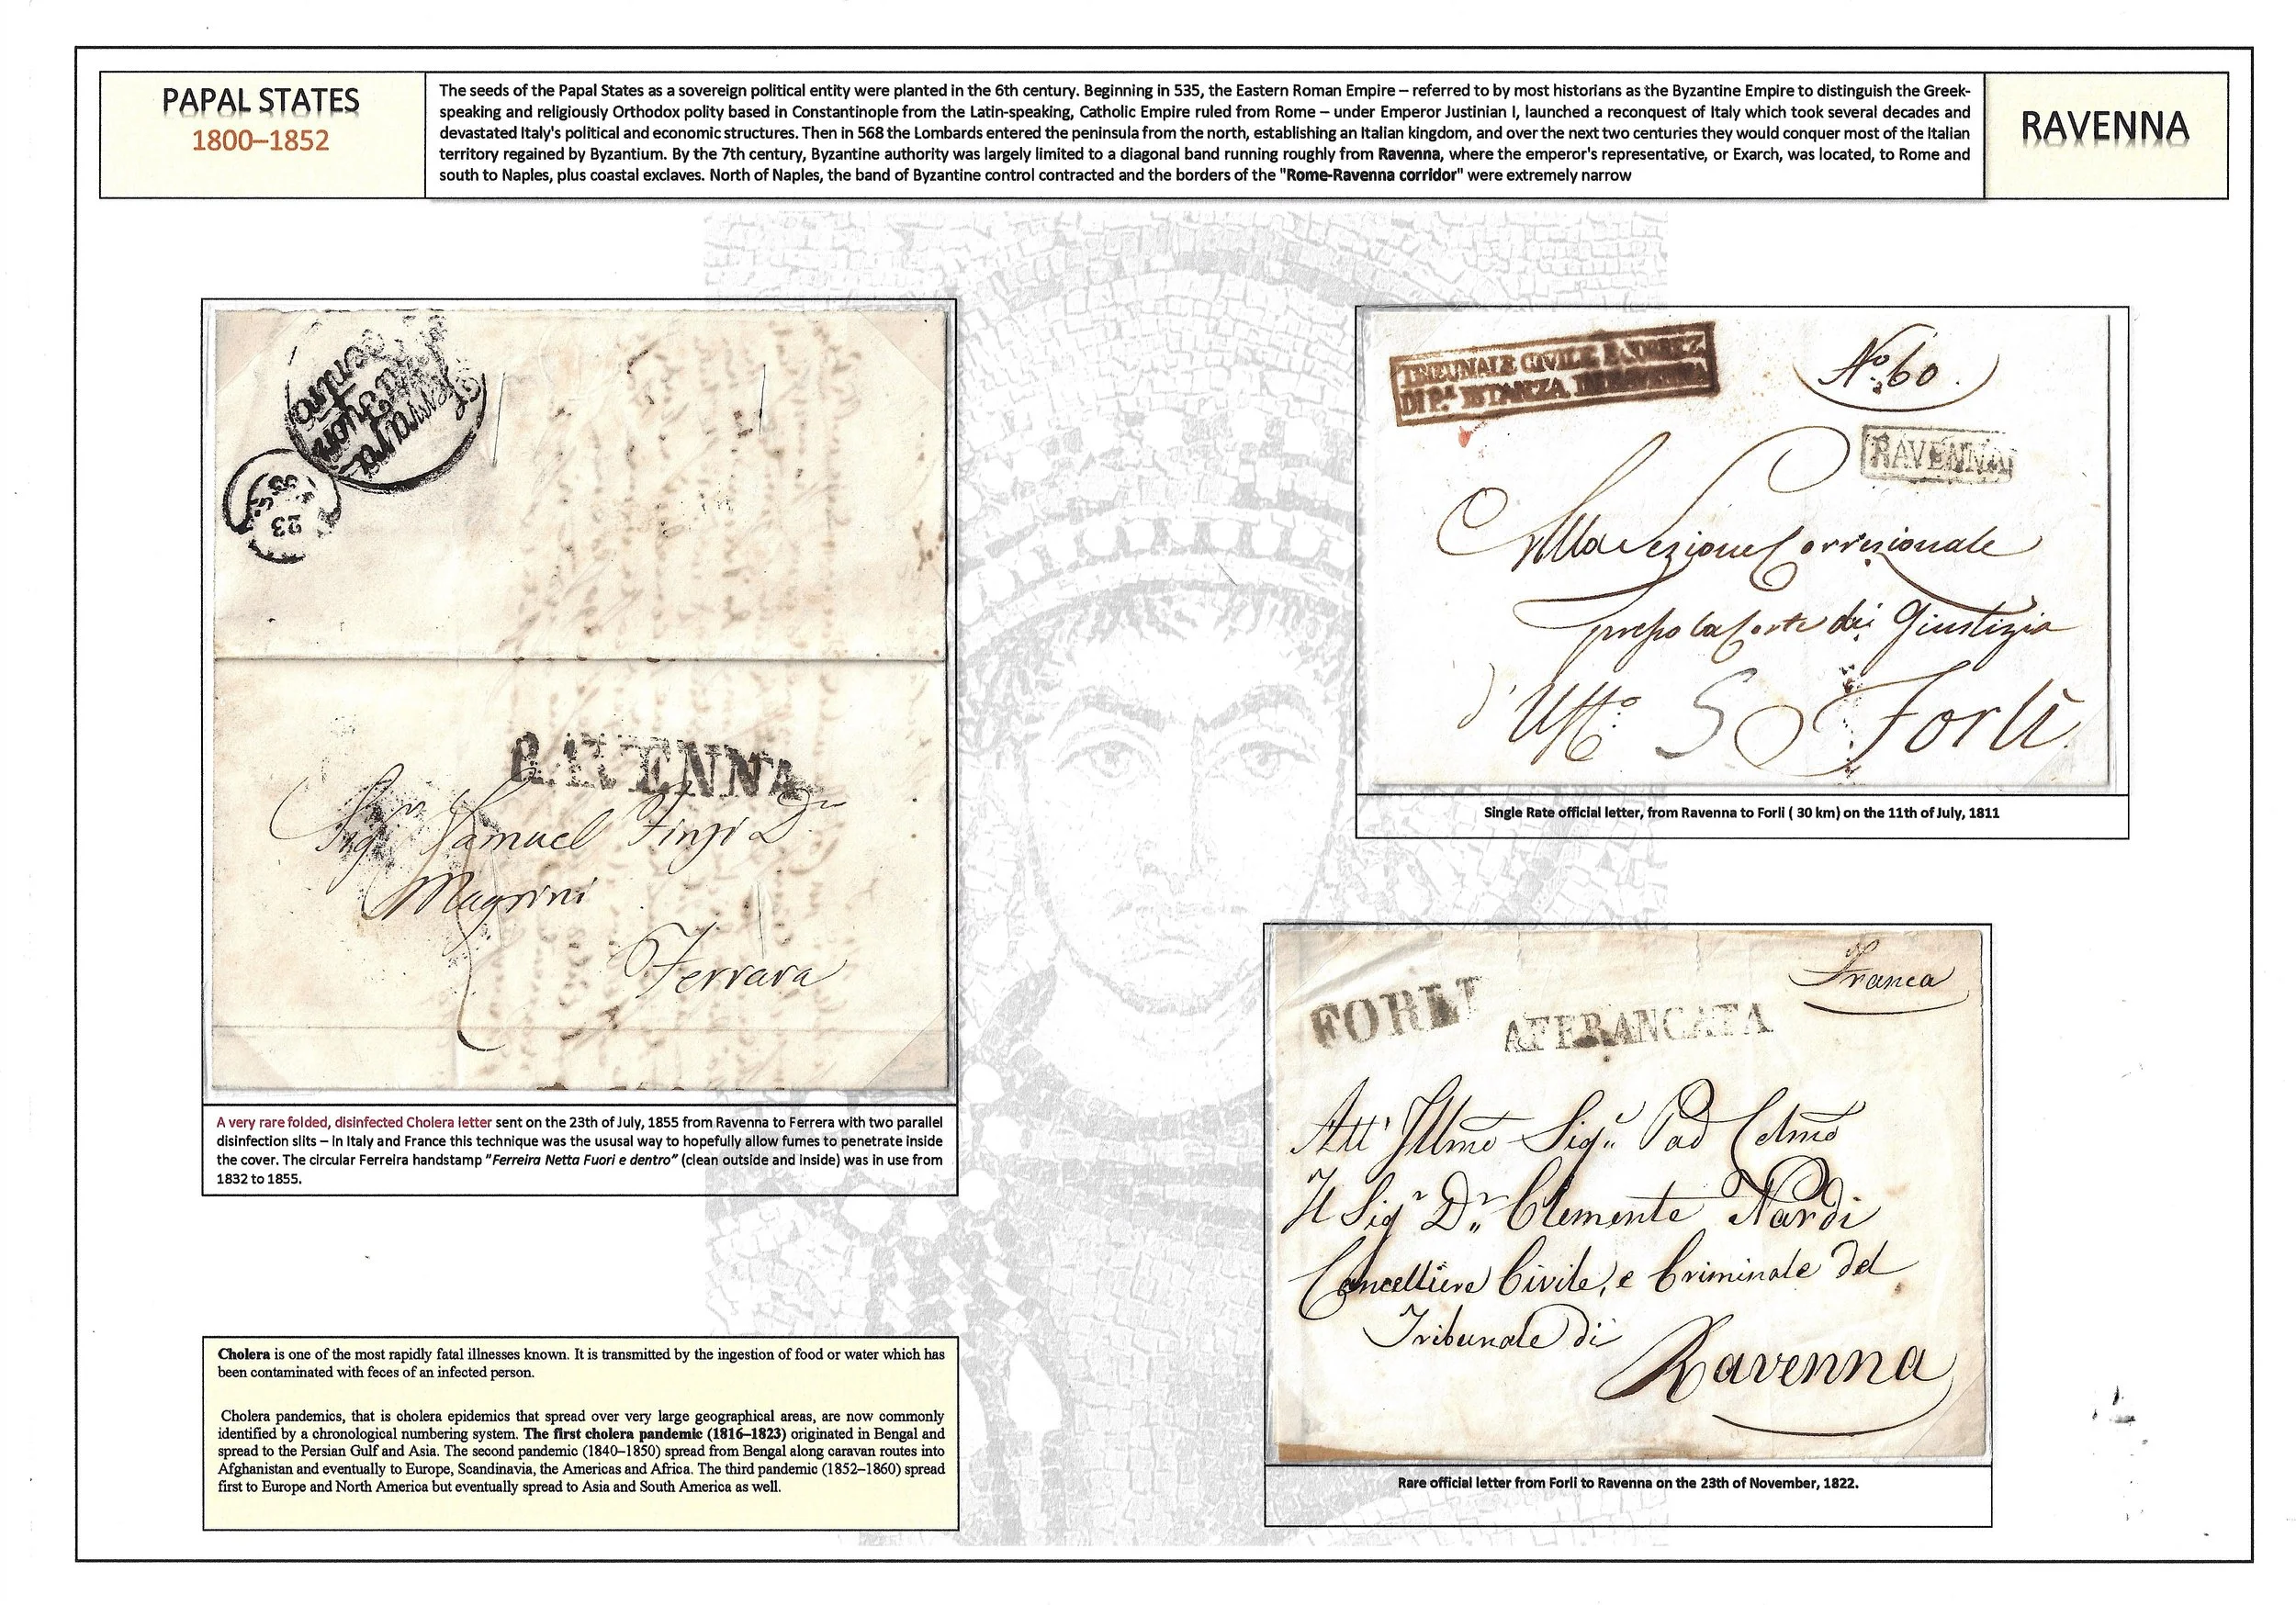 PAPAL STATES
1800–1852
The seeds of the Papal States as a sovereign political entity were planted in the 6th century. Beginning in 535, the Eastern Roman Empire – referred to by most historians as the Byzantine Empire to distinguish the Greek-
speaking and religiously Orthodox polity based in Constantinople from the Latin-speaking, Catholic Empire ruled from Rome – under Emperor Justinian I, launched a reconquest of Italy which took several decades and
devastated Italy's political and economic structures. Then in 568 the Lombards entered the peninsula from the north, establishing an Italian kingdom, and over the next two centuries they would conquer most of the Italian
territory regained by Byzantium. By the 7th century, Byzantine authority was largely limited to a diagonal band running roughly from Ravenna, where the emperor's representative, or Exarch, was located, to Rome and
south to Naples, plus coastal exclaves. North of Naples, the band of Byzantine control contracted and the borders of the "Rome-Ravenna corridor" were extremely narrow
RAVENNA
23
RAVENNA
Sigr Samuel Finzi Dn
Magrini
Ferrara
A very rare folded, disinfected Cholera letter sent on the 23th of July, 1855 from Ravenna to Ferrera with two parallel
disinfection slits – in Italy and France this technique was the ususal way to hopefully allow fumes to penetrate inside
the cover. The circular Ferreira handstamp "Ferreira Netta Fuori e dentro" (clean outside and inside) was in use from
1832 to 1855.
Cholera is one of the most rapidly fatal illnesses known. It is transmitted by the ingestion of food or water which has
been contaminated with feces of an infected person.
Cholera pandemics, that is cholera epidemics that spread over very large geographical areas, are now commonly
identified by a chronological numbering system. The first cholera pandemic (1816–1823) originated in Bengal and
spread to the Persian Gulf and Asia. The second pandemic (1840–1850) spread from Bengal along caravan routes into
Afghanistan and eventually to Europe, Scandinavia, the Americas and Africa. The third pandemic (1852–1860) spread
first to Europe and North America but eventually spread to Asia and South America as well.
TRIBUNALE CIVILE E CORREZ.
DI P.A ISTANZA IN RAVENNA
No. 60.
RAVENNA
Alla Sezione Correzionale
presso la Corte di Giustizia
d'Uffo. Forlì
Single Rate official letter, from Ravenna to Forli ( 30 km) on the 11th of July, 1811
Franca
FORLI AFFRANCATA
All' Illmo Sigr. Pad Colmo
Il Sigr Dr. Clemente Nardi
Cancelliere Civile, e Criminale del
Tribunale di
Ravenna
Rare official letter from Forli to Ravenna on the 23th of November, 1822.